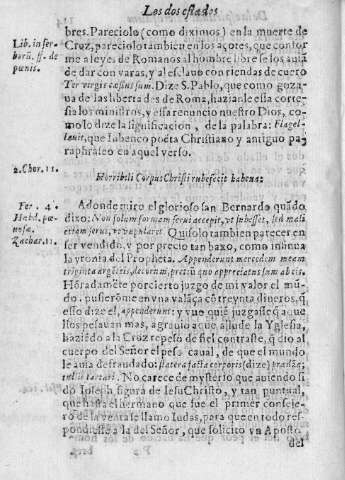 Los dos estados
bres. Pareciolo (como diximos) en la muerte de
Lib. in ser-
Cruz, pareciolo tambien en los açotes, que confor
me a leyes de Romanos al hombre libre se los auiã
de dar con varas, y al esclauo con riendas de cuero
pœnis.
Ter virgis cæsus sum. Dize S. Pablo, que como goza
ua de las libertades de Roma, hazianle esta corte-
sia los ministros, y esta renuncio nuestro Dios, co-
mo lo dize la significacion, de la palabra: Flagel-
lauit, que Iubenco poëta Christiano y antiguo pa-
raphraseo en aquel verso.
2. Chor. 11.
Horribili Corpus Christi rubefecit habena:
Adonde miro el glorioso san Bernardo quãdo
Fer. 4.
dixo: Non solum formam serui accepit, vt subesset, sed mali
Hebd. pœ-
etiam serui, vt vapularet. Quisolo tambien parecer en
nosæ.
ser vendido, y por precio tan baxo, como insinua
Zachar. 11.
la yronia del Propheta. Appenderunt mercedem meam
triginta argẽteis, decorum, pretiũ quo appreciatus sum ab eis.
Hõradamẽte por cierto juzgo de mi valor el mũ-
do, pusierõme en vna valãça cõ treynta dineros, q̃
esso dize el, appenderunt: y vue quiẽ juzgasse q̃ aque
llos pesauan mas, agrauio que alude la Yglesia,
haziẽdo a la Cruz repeso de fiel contraste, q̃ dio al
cuerpo del Señor el peso caual, de que el mundo
le auia defraudado: statera facta corporis (dize)
tartari. No carece de mysterio que auiendo si
do Ioseph figura de IesuChristo, y tan puntual,
que hasta el hermano que fue el primer conseje-
ro de la venta se llamo Iudas, para que en todo res-
pondiesse a la del Señor, que solicito vn Aposto
del